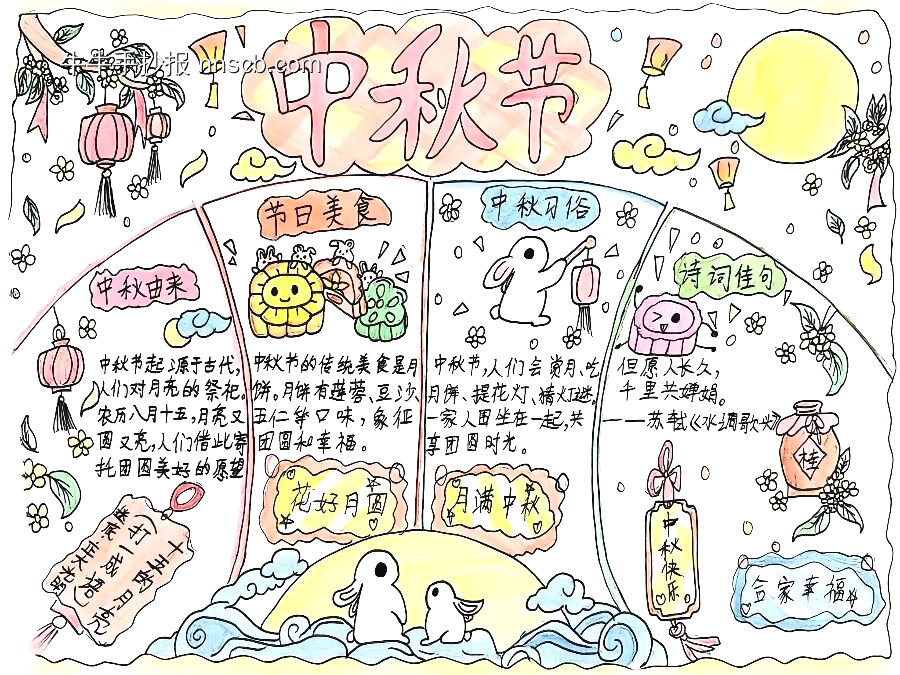 牛牛手抄报 nnscb.com
中秋节
中秋由来
中秋节起源于古代,
人们对月亮的祭祀。
农历八月十五,月亮又
圆又亮,人们借此寄
托团圆美好的愿望
节日美食
中秋节的传统美食是月
饼。月饼有莲蓉、豆沙、
五仁等口味,象征
团圆和幸福。
中秋习俗
中秋节,人们会赏月、吃
月饼、提花灯、猜灯谜。
一家人围坐在一起,共
享团圆时光。
诗词佳句
但愿人长久,
千里共婵娟。
——苏轼《水调歌头》
桂
花好月圆
月满中秋
中秋快乐
合家幸福
十五的月亮
(打一成语)
谜底:正大光明